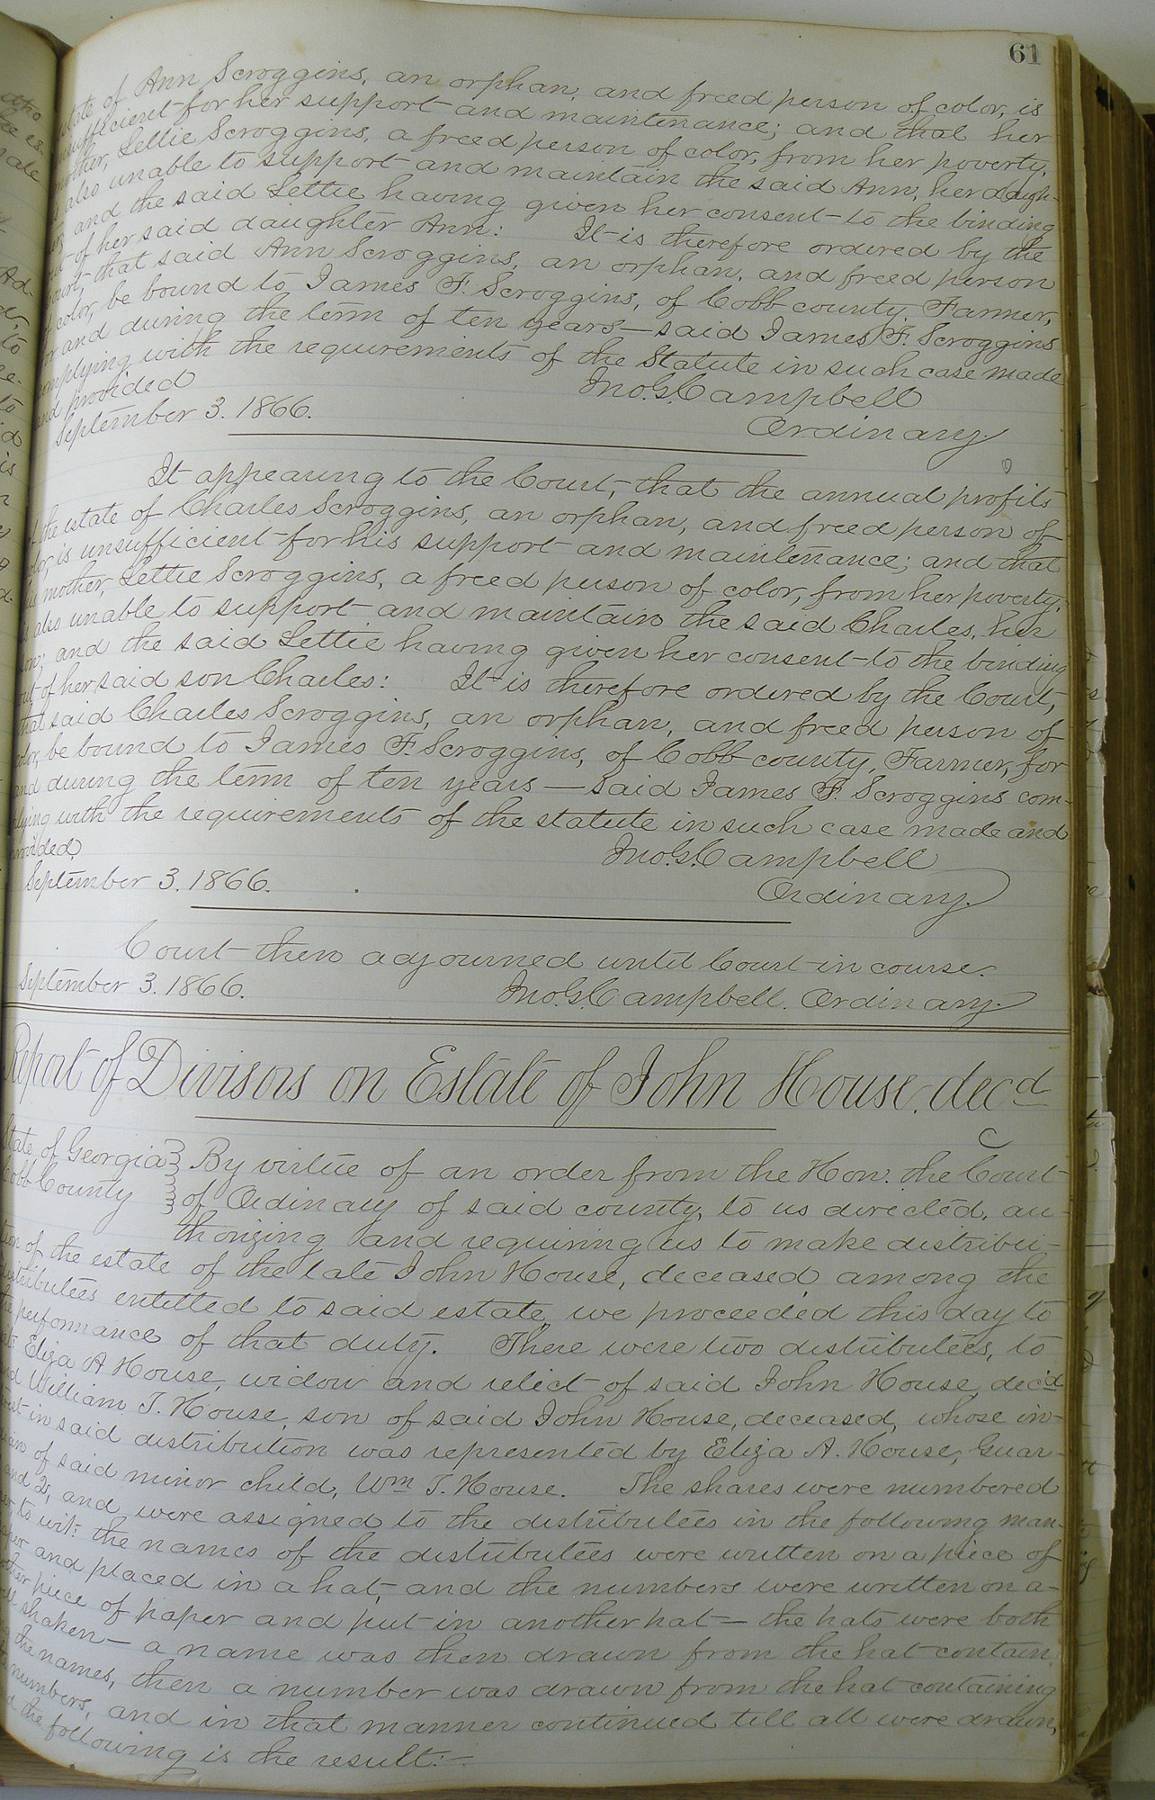 61
state of Ann Scroggins, an orphan, and freed person of color, is
insufficient for her support and maintenance; and that her
mother, Lettie Scroggins, a freed person of color, from her poverty,
is also unable to support and maintain the said Ann, her daugh-
ter; and the said Lettie, having given her consent to the binding
out of her said daughter Ann: It is therefore ordered by the
Court, that said Ann Scroggins, an orphan, and freed person
of color, be bound to James F. Scroggins, of Cobb county, Farmer,
for and during the term of ten years — said James F. Scroggins
complying with the requirements of the Statute in such case made
and provided
Jno. G. Campbell
September 3. 1866.
Ordinary
It appearing to the Court, that the annual profits
of the estate of Charles Scroggins, an orphan, and freed person of
color, is unsufficient for his support and maintenance; and that
his mother, Lettie Scroggins, a freed person of color, from her poverty,
is also unable to support and maintain the said Charles, her
son; and the said Lettie having given her consent to the binding
out of her said son Charles: It is therefore ordered by the Court,
that said Charles Scroggins, an orphan, and freed person of
color, be bound to James F. Scroggins, of Cobb county, Farmer, for
and during the term of ten years — said James F. Scroggins com-
plying with the requirements of the statute in such case made and
provided.
Jno. G. Campbell
September 3. 1866.
Ordinary.
Court then adjourned until Court in course.
September 3. 1866.
Jno. G. Campbell. Ordinary.
Report of Divisors on Estate of John House, decd
State of Georgia } By virtue of an order from the Hon. the Court
Cobb County } of Ordinary of said county, to us directed, au-
thorizing and requiring us to make distribu-
tion of the estate of the late John House, deceased, among the
distributees entitled to said estate, we proceeded this day to
the performance of that duty. There were two distributees, to
wit: Eliza A House, widow and relict of said John House, decd
and William T. House, son of said John House, deceased, whose in-
terest in said distribution was represented by Eliza A. House, Guar-
dian of said minor child, Wm T. House. The shares were numbered
and 2, and were assigned to the distributees in the following man-
ner to wit: the names of the distributees were written on a piece of
paper and placed in a hat, and the numbers were written on a-
nother piece of paper and put in another hat — the hats were both
well shaken — a name was then drawn from the hat contain
the names, then a number was drawn from the hat containing
numbers, and in that manner continued till all were drawn,
the following is the result: —